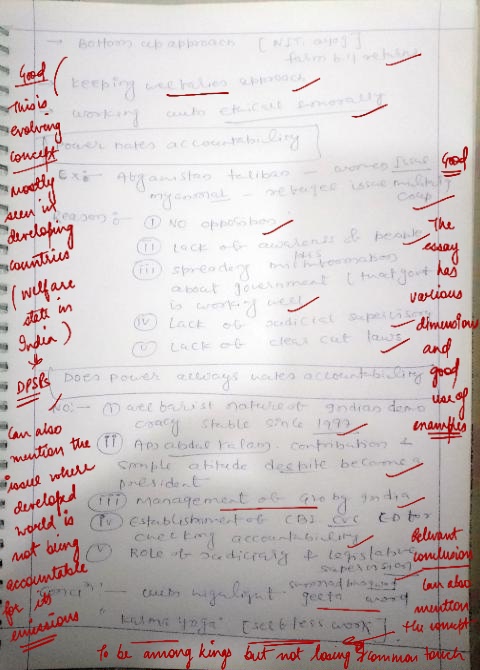 → Bottom up approach [NITI ayog]
farm bill repeal
→ Keeping welfarist approach
→ working with ethical & morally
Power hates accountability
Ex:- Afganistan taliban - women issue
myanmar - refugee issue military
coup
Reason :-
(i) NO opposition
(ii) Lack of awareness of people
(iii) spreading misinformation
about government (that govt
is working well
(iv) Lack of judicial supervisory
(v) Lack of clear cut laws
Does power always hates accountability
NO:- (i) welfarist nature of Indian demo
cracy stable since 1977
(ii) APJ abdul kalam. contribution &
simple atitude despite become a
president
(iii) Management of by India
(iv) Establishment of CBI CVC ED for
checking accountability
(v) Role of judiciary & legislative
supervision
with
geeta word
"Karmayoga" [selfless work]
Good
This is
evolving
concept
mostly
seen in
developing
countries
(welfare
state in
India)
↓
DPSPs
Can also
mention the
issue where
developed
world is
not being
accountable
for its
emissions
Good
The
essay
has
various
dimensions
and
good
use of
examples
Relevant
conclusion
Can also
mention
the concept
To be among kings but not losing common touch